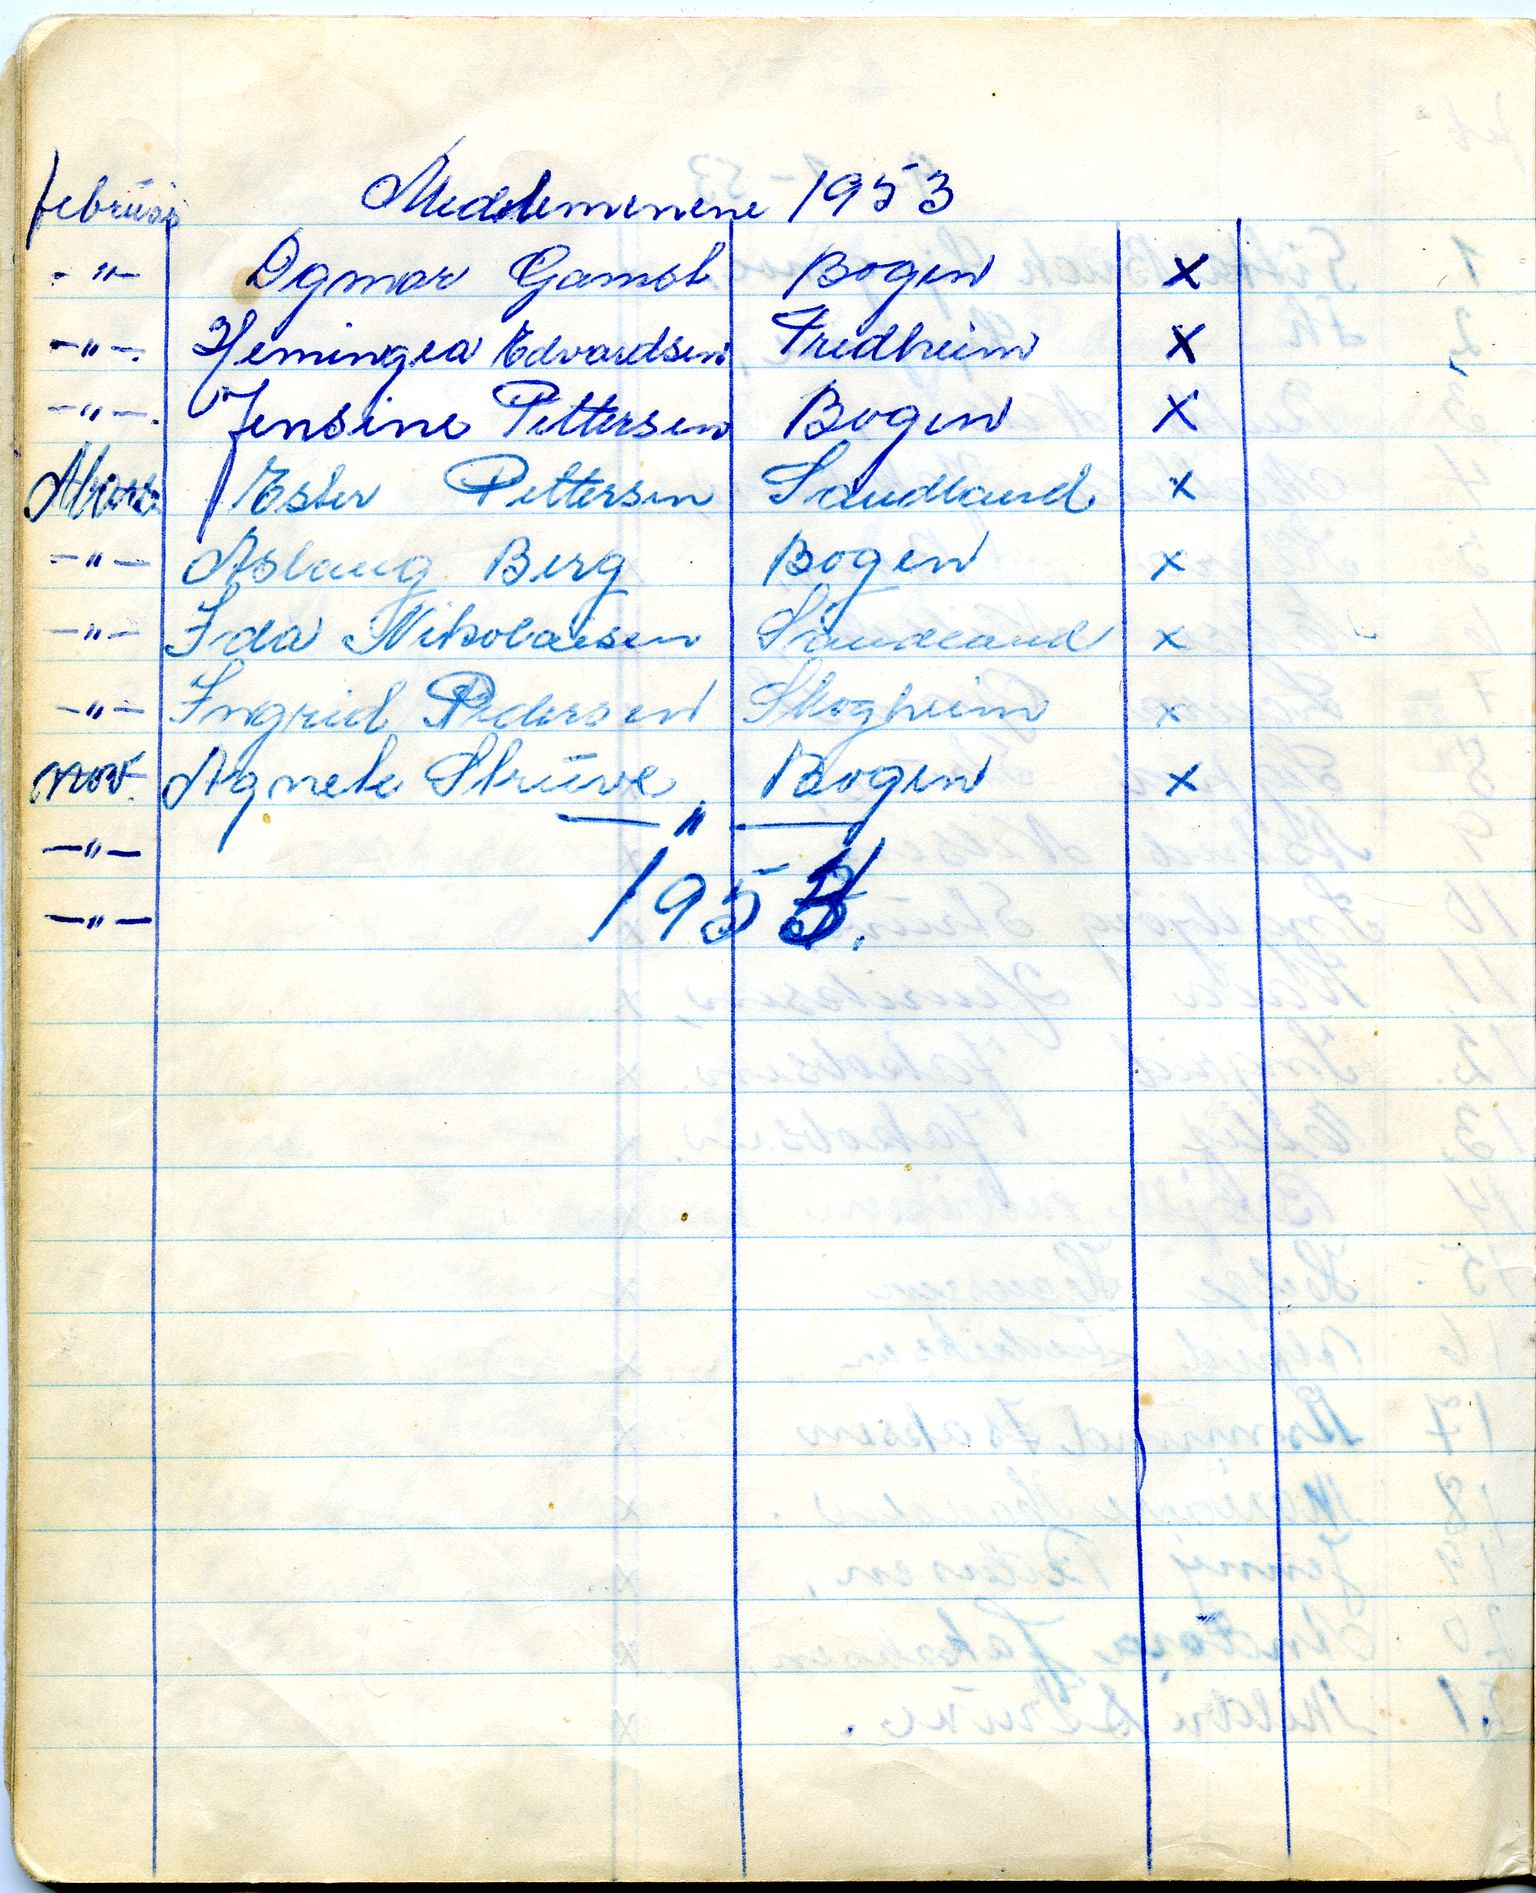 februar Medlemmene 1953
-"- Dgmar Gamst Bogen x
-"-. Hemingea Edvardsen Fredheim x
-"-. Jensine Pettersen Bogen x
Ester Pettersen Sandland x
-"- Aslaug Berg Bogen x
-"- Ida Nikolaisen Sandland x
-"- Ingrid Pedersen Skogheim x
nov. Agnete Strüve Bogen x
— " —
-"-
-"- 195